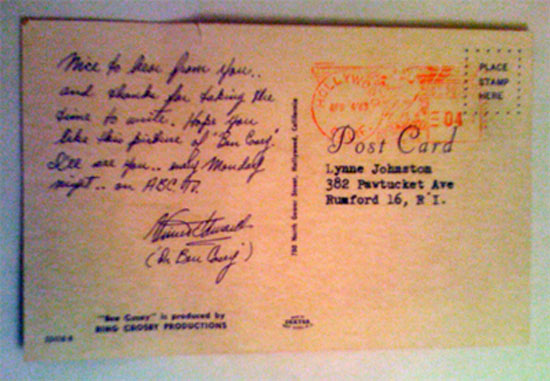 Nice to hear from you..
and thanks for taking the
time to write. Hope you
like this picture of "Ben Casey."
I'll see you.. every Monday
night.. on ABC TV.
Vince Edwards
(Dr. Ben Casey)
"Ben Casey" is produced by
BING CROSBY PRODUCTIONS
780 North Gower Street, Hollywood, California
DEXTER
HOLLYWOOD
APR
04
PLACE
STAMP
HERE
Post Card
Lynne Johnston
382 Pawtucket Ave
Rumford 16, R I.